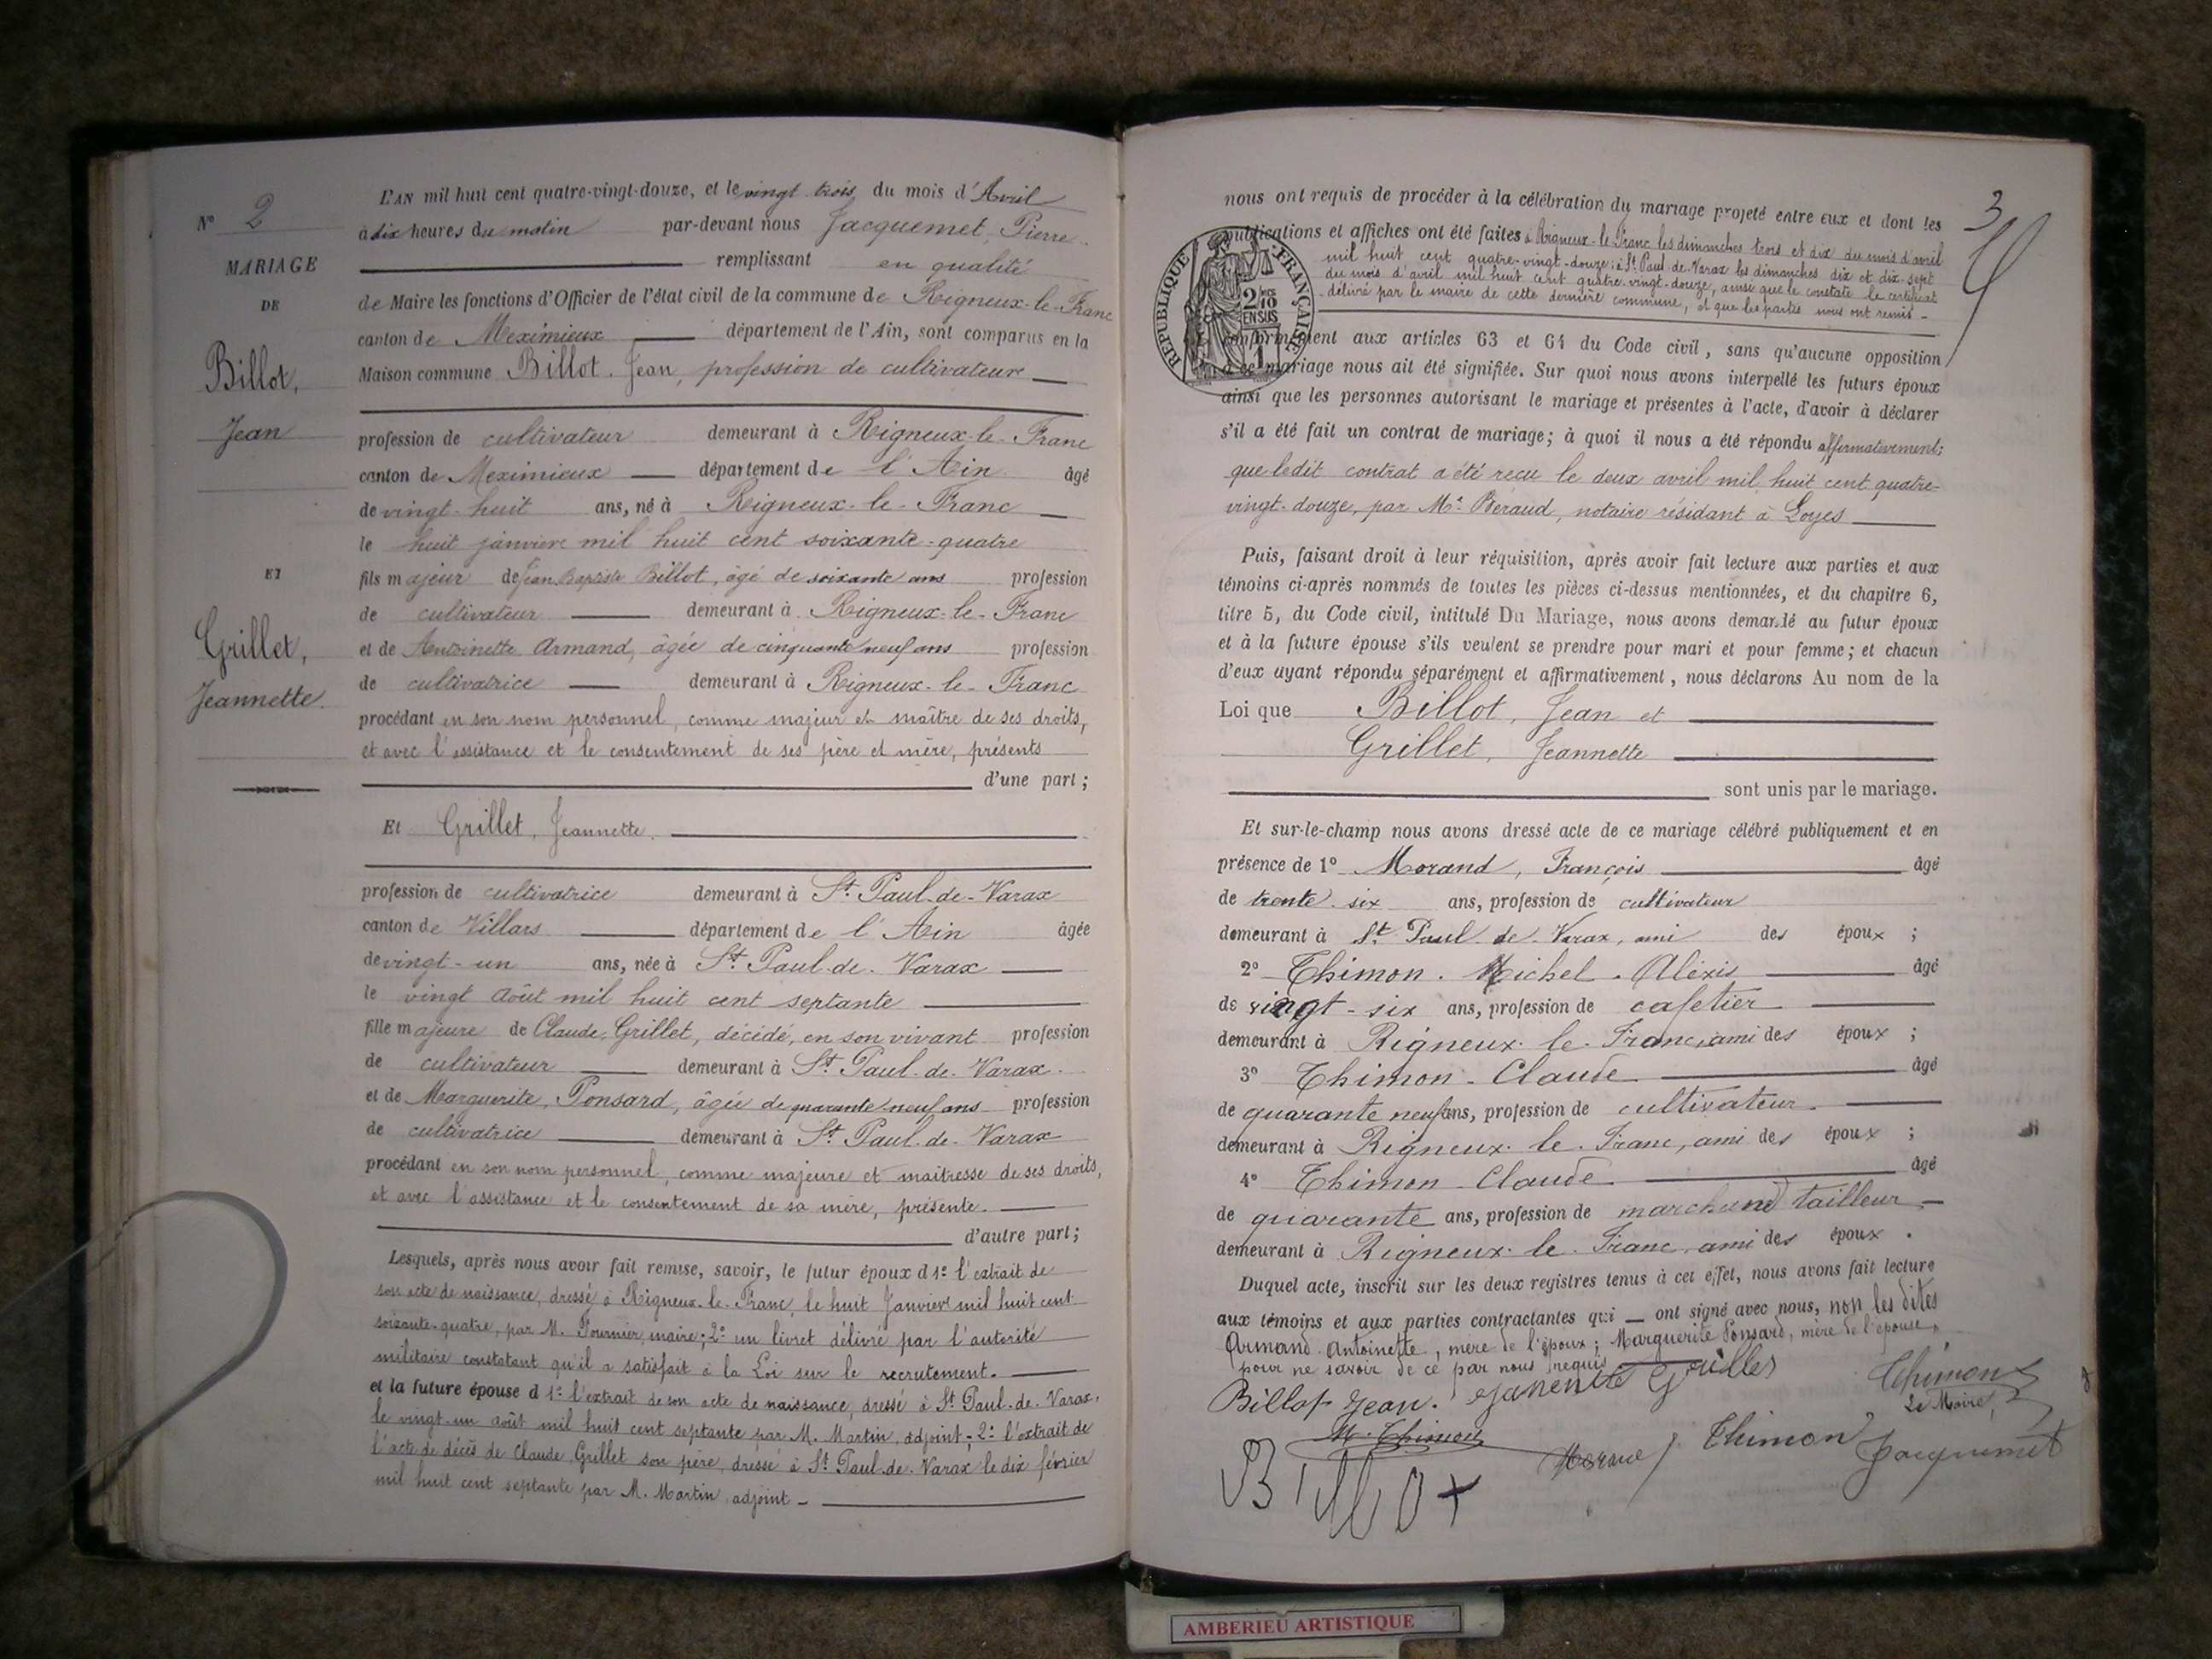 N° 2
MARIAGE
DE
Billot,
Jean
ET
Grillet,
Jeannette.
L'AN mil huit cent quatre-vingt-douze, et le vingt trois du mois d'Avril
à dix heures du matin par-devant nous Jacquemet, Pierre
remplissant en qualité
de Maire les fonctions d'Officier de l'état civil de la commune de Rigneux-le-Franc
canton de Meximieux département de l'Ain, sont comparus en la
Maison commune Billot. Jean, profession de cultivateur
profession de cultivateur demeurant à Rigneux-le-Franc
canton de Meximieux département de l'Ain âgé
de vingt-huit ans, né à Rigneux-le-Franc
le huit janvier mil huit cent soixante-quatre
fils majeur de Jean Baptiste Billot, âgé de soixante ans profession
de cultivateur demeurant à Rigneux-le-Franc
et de Antoinette Armand, âgée de cinquante neuf ans profession
de cultivatrice demeurant à Rigneux-le-Franc
procédant en son nom personnel, comme majeur et maître de ses droits,
et avec l'assistance et le consentement de ses père et mère, présents
d'une part ;
Et Grillet, Jeannette.
profession de cultivatrice demeurant à St Paul-de-Varax
canton de Villars département de l'Ain âgée
de vingt-un ans, née à St Paul-de-Varax
le vingt août mil huit cent septante
fille majeure de Claude, Grillet, décédé, en son vivant profession
de cultivateur demeurant à St Paul-de-Varax.
et de Marguerite, Ponsard, âgée de quarante-neuf ans profession
de cultivatrice demeurant à St Paul-de-Varax
procédant en son nom personnel, comme majeure et maîtresse de ses droits,
et avec l'assistance et le consentement de sa mère, présente.
d'autre part;
Lesquels, après nous avoir fait remise, savoir, le futur époux d 1° l'extrait de
son acte de naissance, dressé à Rigneux-le-Franc, le huit Janvier mil huit cent
soixante-quatre, par M. Fournier, maire; 2° un livret délivré par l'autorité
militaire constatant qu'il a satisfait à la Loi sur le recrutement.
et la future épouse d 1° l'extrait de son acte de naissance, dressé à St Paul-de-Varax,
le vingt-un août mil huit cent septante par M. Martin, adjoint; 2° l'extrait de
l'acte de décès de Claude Grillet son père, dressé à St Paul-de-Varax le dix février
mil huit cent septante par M. Martin, adjoint
3
nous ont requis de procéder à la célébration du mariage projeté entre eux et dont les
publications et affiches ont été faites à Rigneux-le-Franc les dimanches trois et dix du mois d'avril
mil huit cent quatre-vingt-douze; à St Paul-de-Varax les dimanches dix et dix-sept
du mois d'avril mil huit cent quatre-vingt-douze, ainsi que le constate le certificat
délivré par le maire de cette dernière commune, et que les parties nous ont remis
RÉPUBLIQUE FRANÇAISE
2/10 EN SUS
conformément aux articles 63 et 64 du Code civil, sans qu'aucune opposition
à ce mariage nous ait été signifiée. Sur quoi nous avons interpellé les futurs époux
ainsi que les personnes autorisant le mariage et présentes à l'acte, d'avoir à déclarer
s'il a été fait un contrat de mariage; à quoi il nous a été répondu affirmativement;
que ledit contrat a été reçu le deux avril mil huit cent quatre-
vingt-douze, par Me Beraud, notaire résidant à Loyes
Puis, faisant droit à leur réquisition, après avoir fait lecture aux parties et aux
témoins ci-après nommés de toutes les pièces ci-dessus mentionnées, et du chapitre 6,
titre 5, du Code civil, intitulé Du Mariage, nous avons demandé au futur époux
et à la future épouse s'ils veulent se prendre pour mari et pour femme; et chacun
d'eux ayant répondu séparément et affirmativement, nous déclarons Au nom de la
Loi que Billot, Jean et
Grillet, Jeannette
sont unis par le mariage.
Et sur-le-champ nous avons dressé acte de ce mariage célébré publiquement et en
présence de 1° Morand, François âgé
de trente-six ans, profession de cultivateur
demeurant à St Paul de Varax, ami des époux ;
2° Thimon. Michel. Aléxis âgé
de vingt-six ans, profession de cafetier
demeurant à Rigneux-le-Franc, ami des époux ;
3° Thimon-Claude âgé
de quarante neuf ans, profession de cultivateur.
demeurant à Rigneux-le-Franc, ami des époux ;
4° Thimon-Claude âgé
de quarante ans, profession de marchand tailleur
demeurant à Rigneux-le-Franc, ami des époux .
Duquel acte, inscrit sur les deux registres tenus à cet effet, nous avons fait lecture
aux témoins et aux parties contractantes qui ont signé avec nous, non les dites
Armand Antoinette, mère de l'époux; Marguerite Ponsard, mère de l'épouse,
pour ne savoir de ce par nous requis
Billot Jean. Grillet Thimon
M. Thimon Le Maire,
Billot Thimon Jacquemet
AMBERIEU ARTISTIQUE